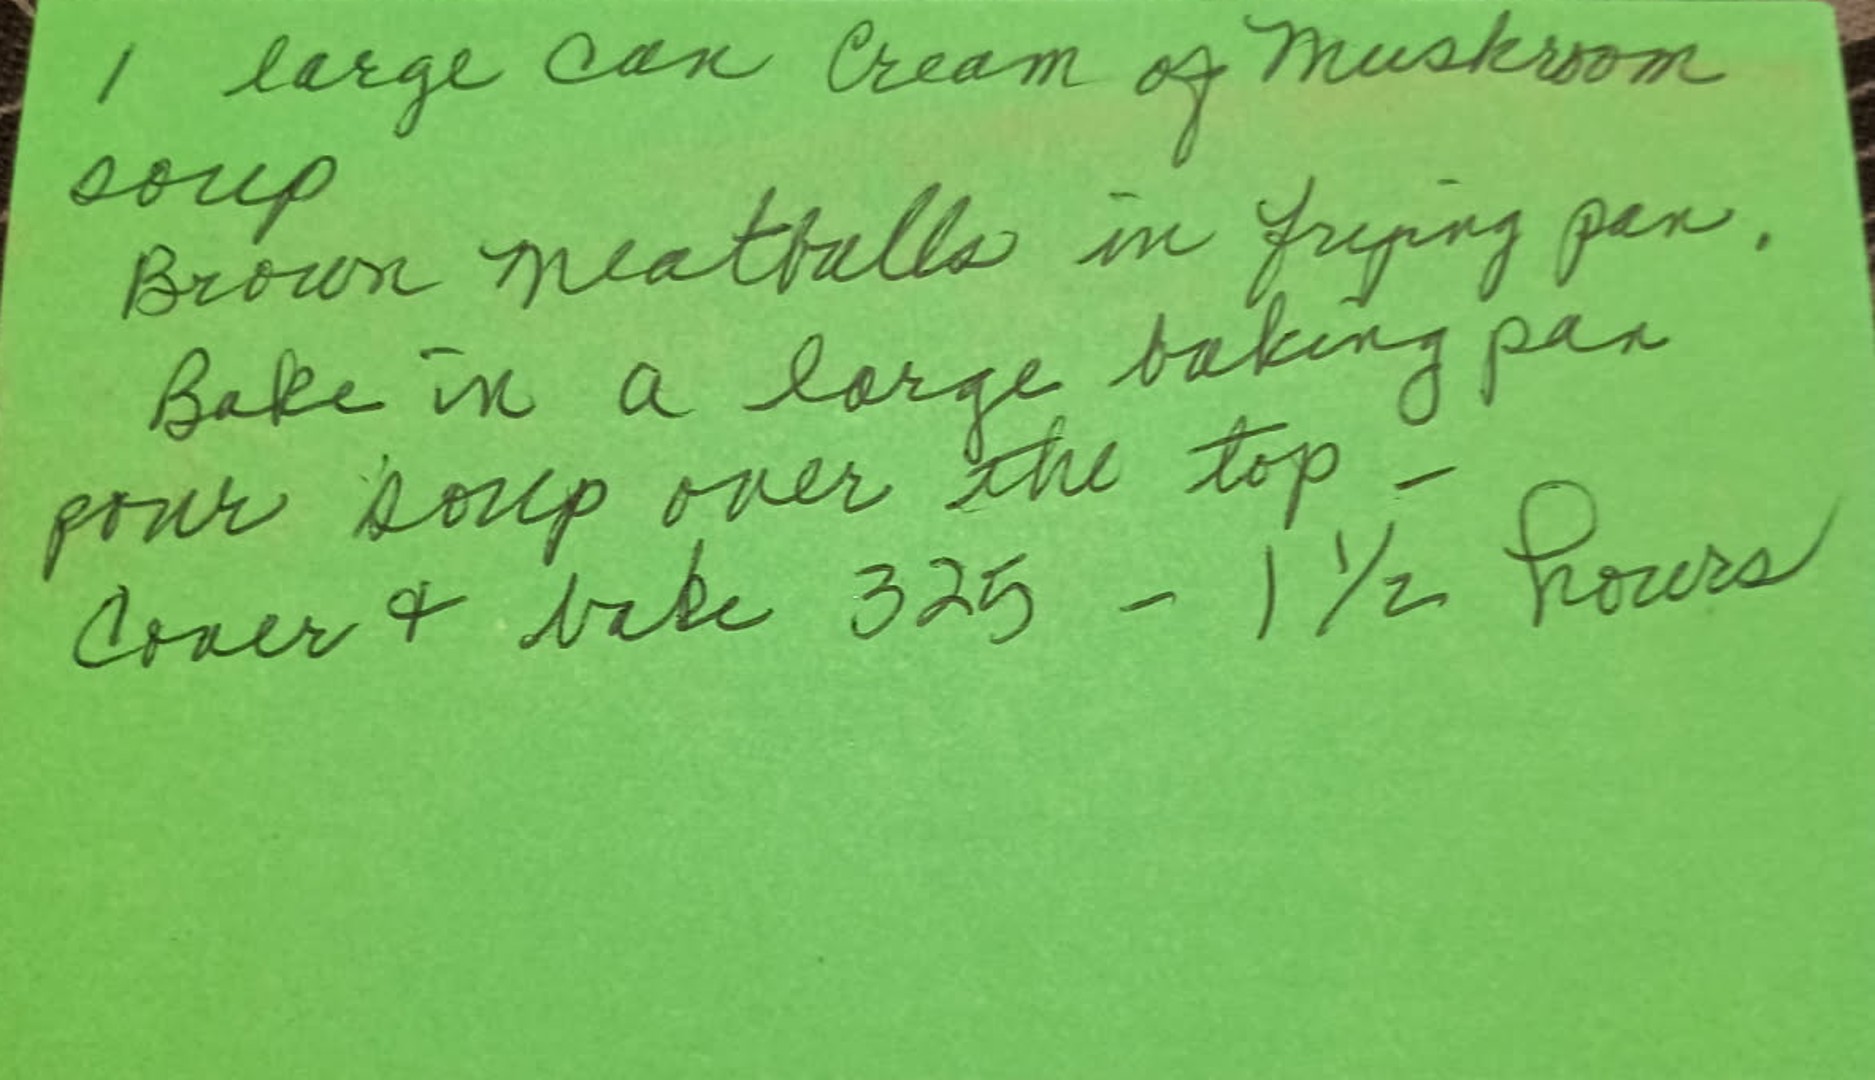 1 large can Cream of Mushroom
soup
Brown meatballs in frying pan.
Bake in a large baking pan
pour soup over the top -
Cover & bake 325 - 1 1/2 hours